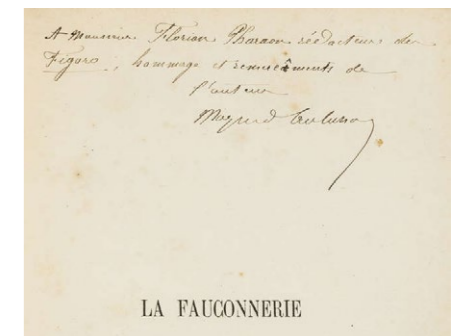 A Monsieur Florian Pharaon rédacteur de
Figaro, hommage et remerciments de
l'auteur
Magaud
LA FAUCONNERIE